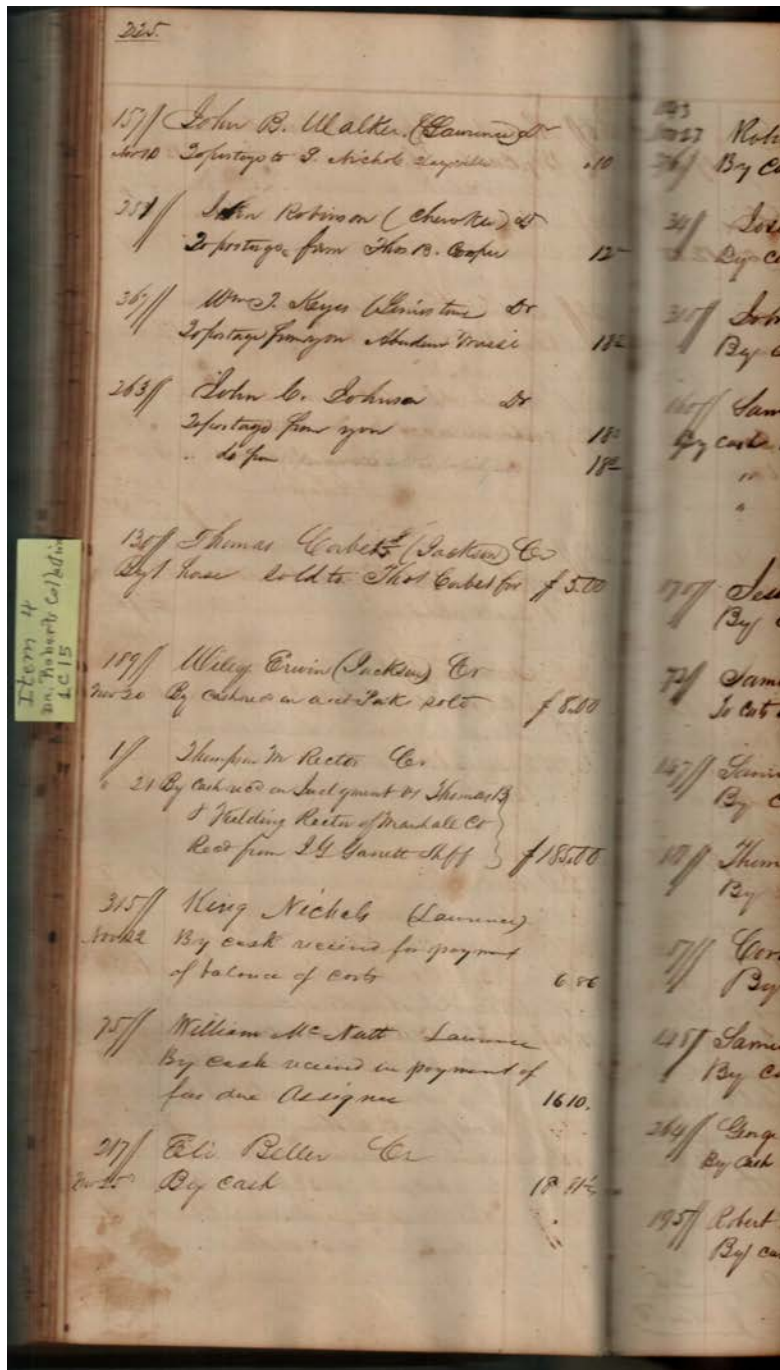 225.
157 John B. Walker (Lawrence) Dr
Nov 10 To postage to J. Nichols .10
251 John Robinson (Cherokee) Dr
To postage from Thos B. Cooper 12
367 Wm J. Keyes Dr
To postage from you Aberdeen 18
263 John C. Johnson Dr
To postage from you 18
" do from 18
130 Thomas Corbett (Jackson) Cr
By 1 horse sold to Thos Corbet for $ 5.00
189 Wiley Erwin (Jackson) Cr
Nov 20 By cash on acct sold $ 8.00
1 Thompson M Rector Cr
" 21 By cash recd on Judgment vs Thomas B
& Fielding Rector of Marshall Co
Recd from J G Garrett Shff $ 185.00
315 King Nichols (Lawrence)
Nov 22 By cash received for payment
of balance of costs 6 86
75 William McNutt Lawrence
By cash received in payment of
fees due Assignee 16 10.
217 Eli Beller Cr
Nov 25 By cash 18 81½
27
By C
34
By C
310 John
By
160 Sam
By cash
"
"
170 Jess
By
72 Sam
147
By C
Thom
By
57
By
148 Sam
By Ca
264 Georg
By Cash
195 Robert
By ca
Item 4
Dr. Roberts Collection
LC15